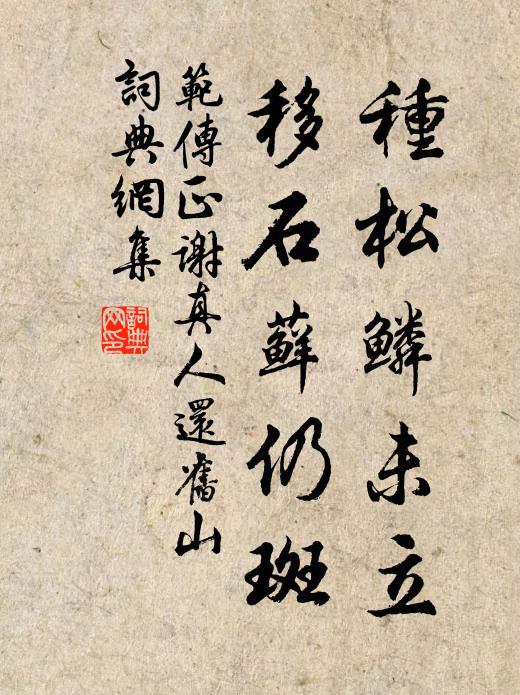 種松鱗未立
移石蘚仍斑
範傳正謝真人還舊山
詞典網集
詞典網印